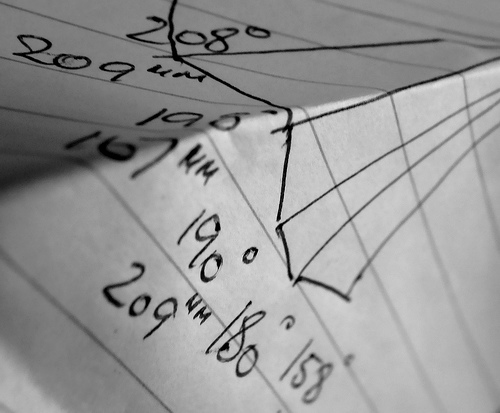 208°
209 mm
195°
167 mm
190°
209 mm 180° 158°